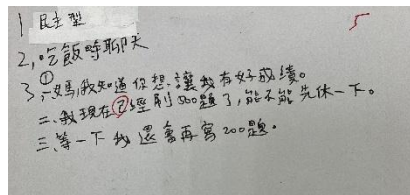 1 民主型
2, 吃飯時聊天
3, ①一、媽,我知道你想讓我有好成績。
二、我現在已經刷500題了,能不能先休一下。
三、等一下我還會再寫200題。